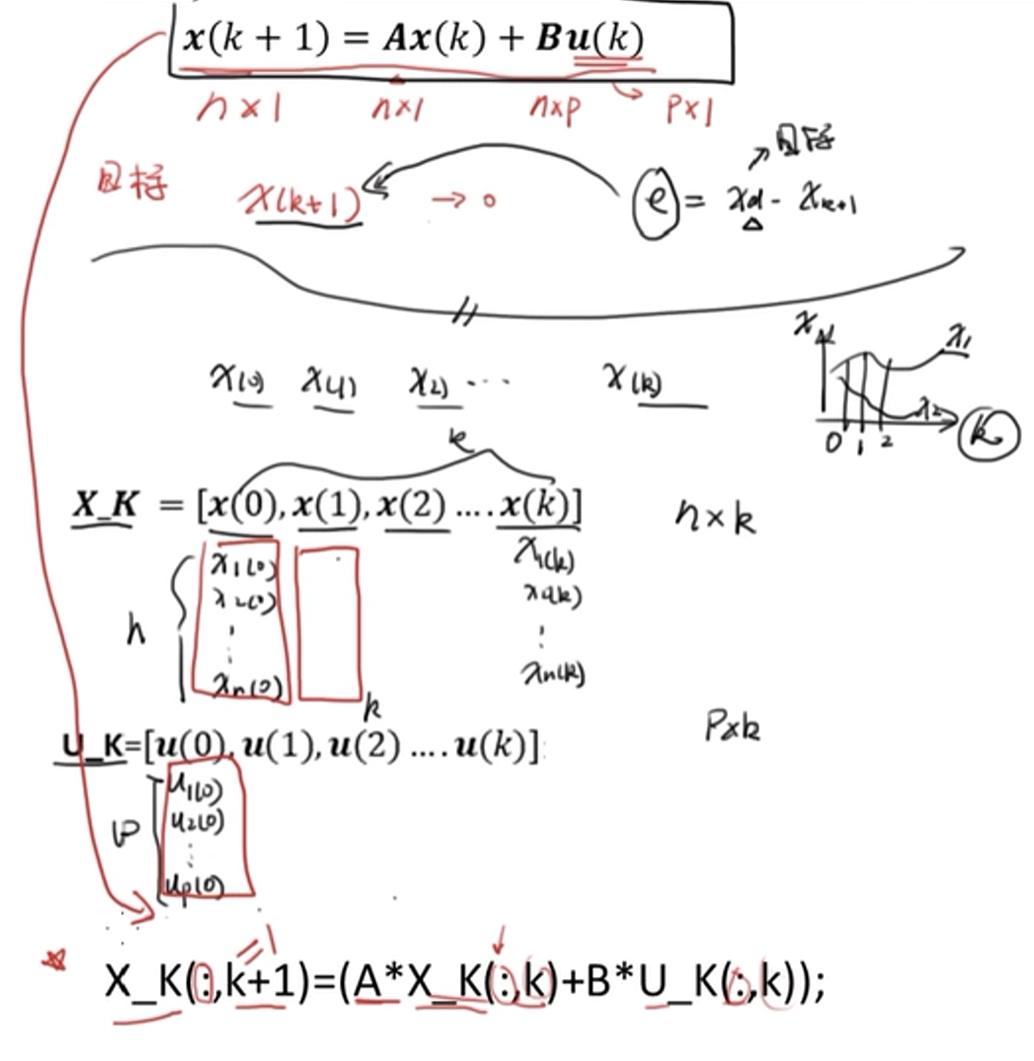 x(k + 1) = Ax(k) + Bu(k)
n×1 n×1 n×p p×1
目标 x(k+1) → 0 e = xd - xk+1 目标
x x1
x(0) x(1) x(2) ... x(k)
x2
0 1 2 k
k
X_K = [x(0), x(1), x(2) .... x(k)] n×k
x1(0) x1(k)
x2(0) x2(k)
⋮ ⋮
n
xn(0) xn(k)
k
U_K=[u(0), u(1), u(2) .... u(k)] P×k
u1(0)
P u2(0)
⋮
up(0)
=1
X_K(:,k+1)=(A*X_K(:,k)+B*U_K(:,k));